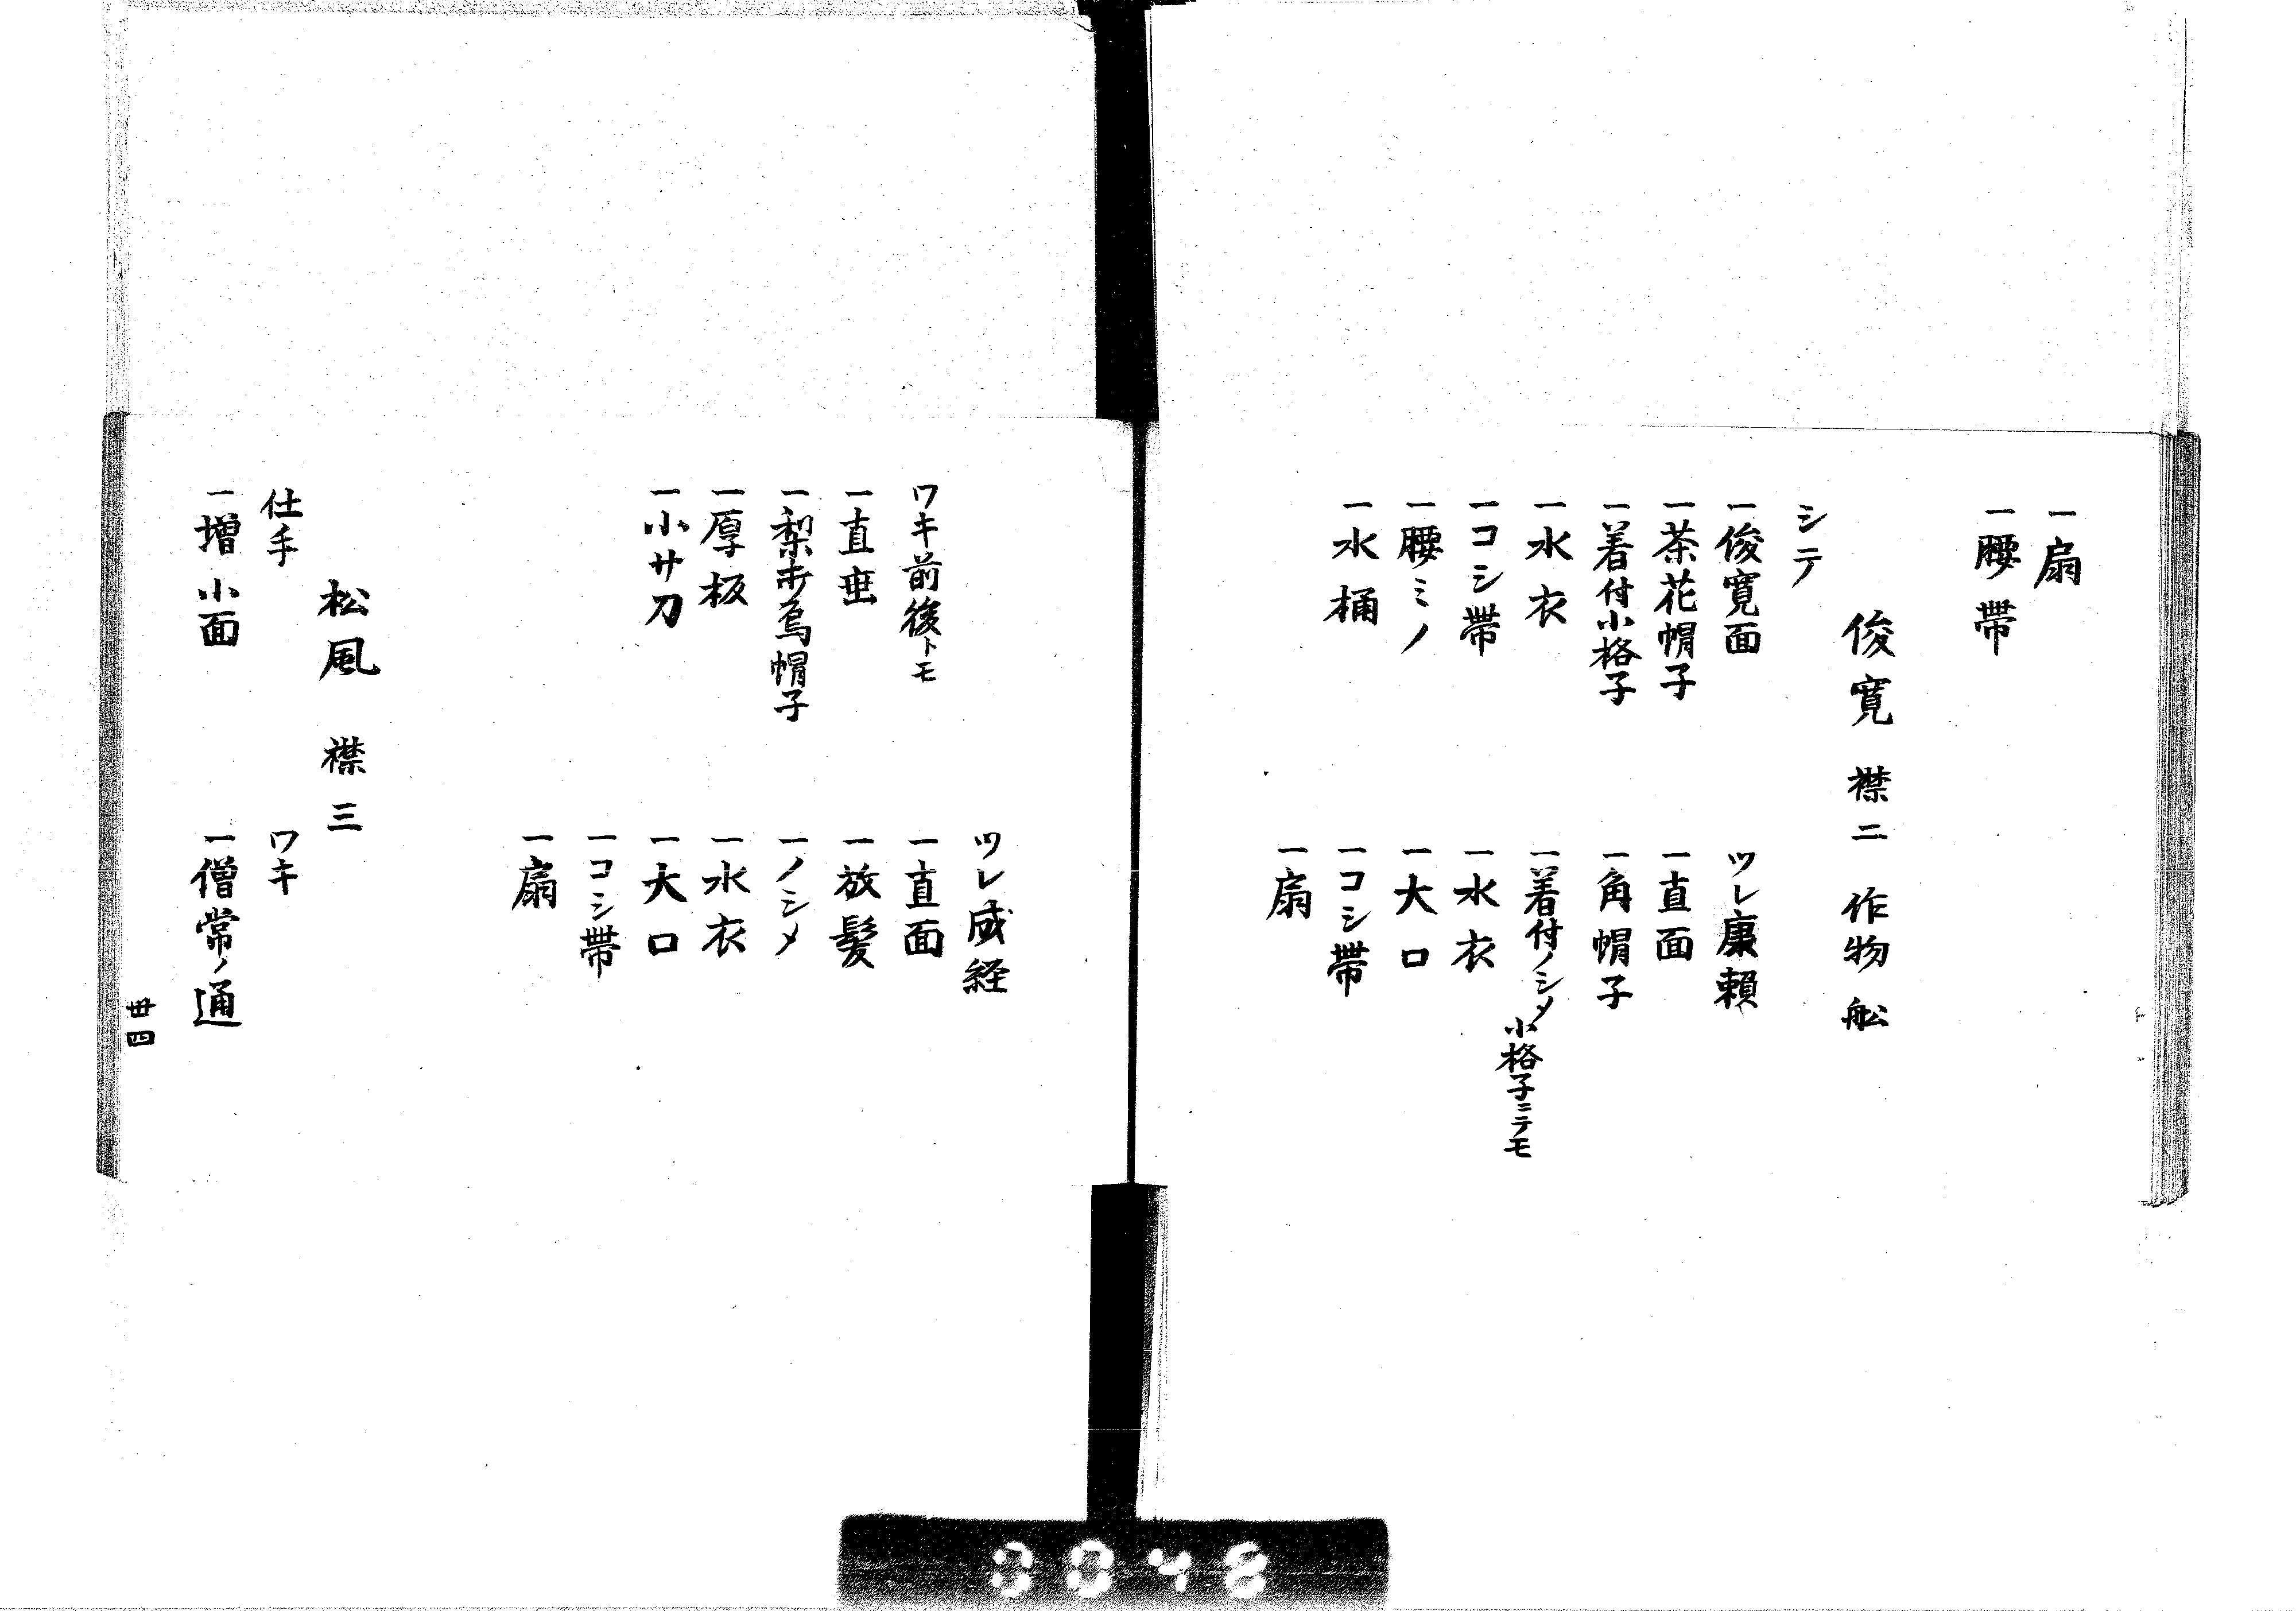 一扇
一腰帯
俊寛 襟二 作物 舩
シテ
一俊寛面
一茶花帽子
一着付小格子
一水衣
一コシ帯
一腰ミノ
一水桶
ツレ康頼
一直面
一角帽子
一着付ノシメ
小格子ニテモ
一水衣
一大口
一コシ帯
一扇
ワキ前後トモ
一直垂
一梨打烏帽子
一厚板
一小サ刀
ツレ成経
一直面
一放髪
一ノシメ
一水衣
一大口
一コシ帯
一扇
松風 襟三
仕手
一増 小面
ワキ
一僧常ノ通
丗四
0048